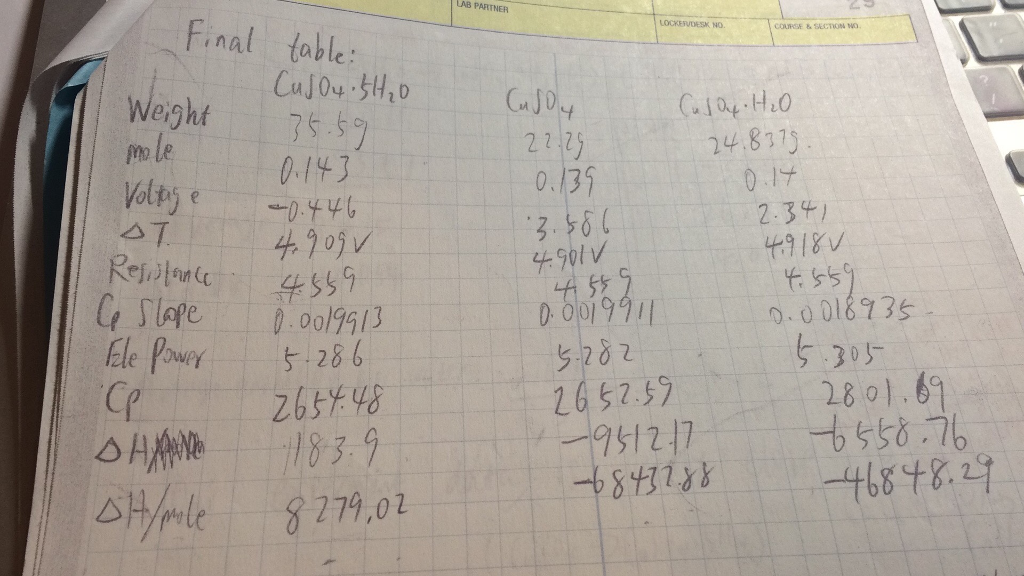 LAB PARTNER
LOCKER/DESK NO.
COURSE & SECTION NO.
Final table:
CuSO4·5H2O CuSO4 CuSO4·H2O
Weight 35.5g 22.2g 24.837g.
mole 0.143 0.139 0.14
Voltage -0.446 3.586 2.341
ΔT. 4.909V 4.901V 4.918V
Resistance 4.559 4.559 4.559
Cp Slope 0.0019913 0.0019911 0.0018935
Ele Power 5.286 5.282 5.305
Cp 2654.48 2652.59 2801.69
ΔH 1183.9 -9512.17 -6558.76
ΔH/mole 8279.02 -68432.88 -46848.29